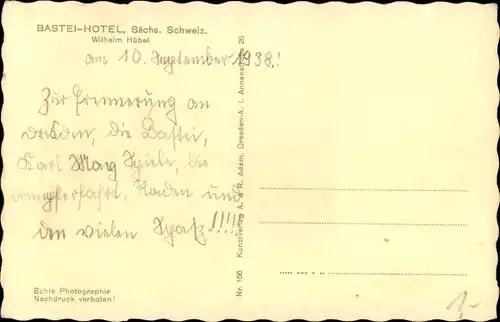 BASTEI-HOTEL, Sächs. Schweiz.
Wilhelm Hübel
am 10. September 1938!
Zur Erinnerung an
Dresden, die Bastei,
Karl May Spiele, die
Dampferfahrt, Raden und
den vielen Spaß!!!!!
Echte Photographie
Nachdruck verboten!
Nr. 166 Kunstverlag A. & R. Adam, Dresden-A. 1, Annenstraße 26
1,-